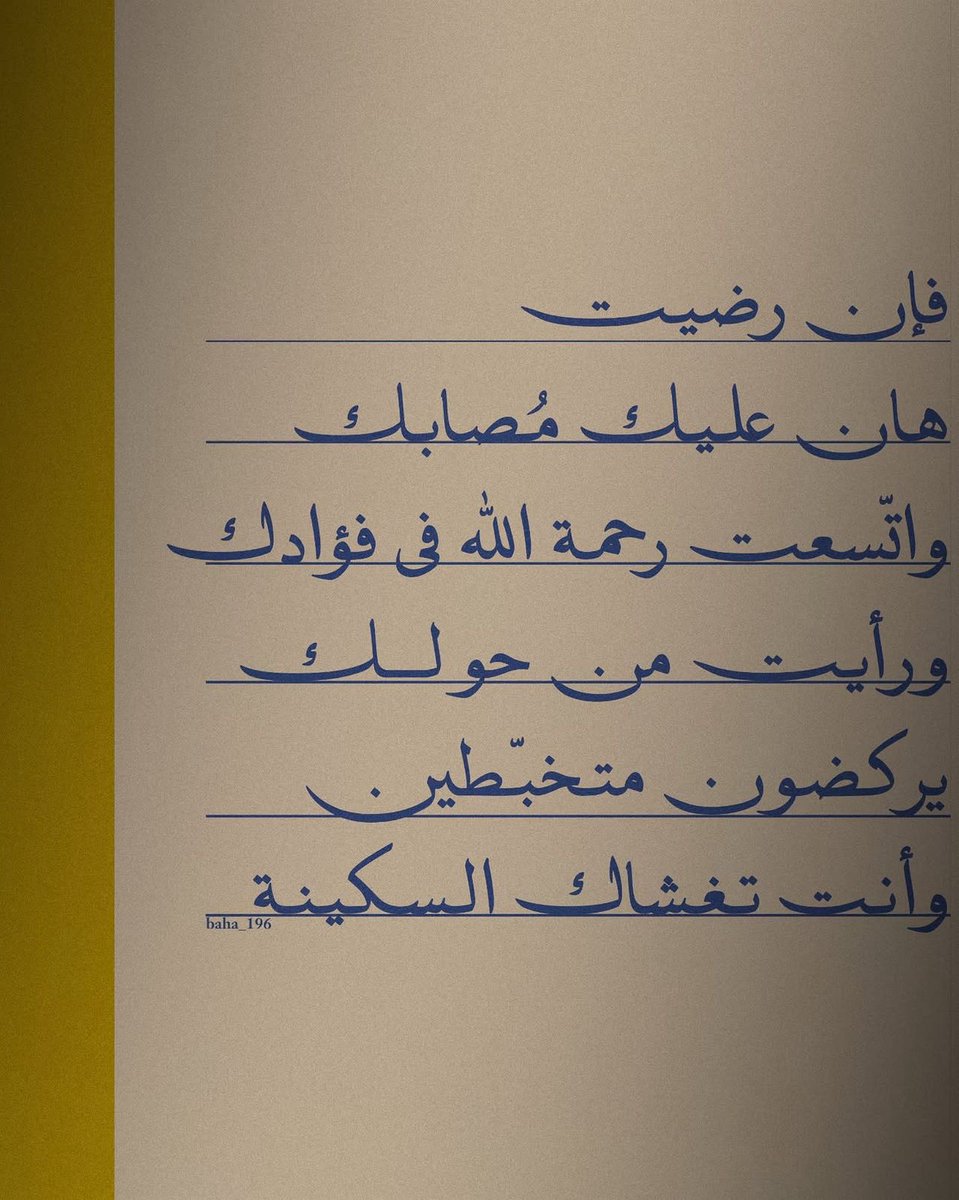 فإن رضيت
هان عليك مُصابك
واتّسعت رحمة الله فى فؤادك
ورأيت من حولك
يركضون متخبّطين
وأنت تغشاك السكينة
baha_196